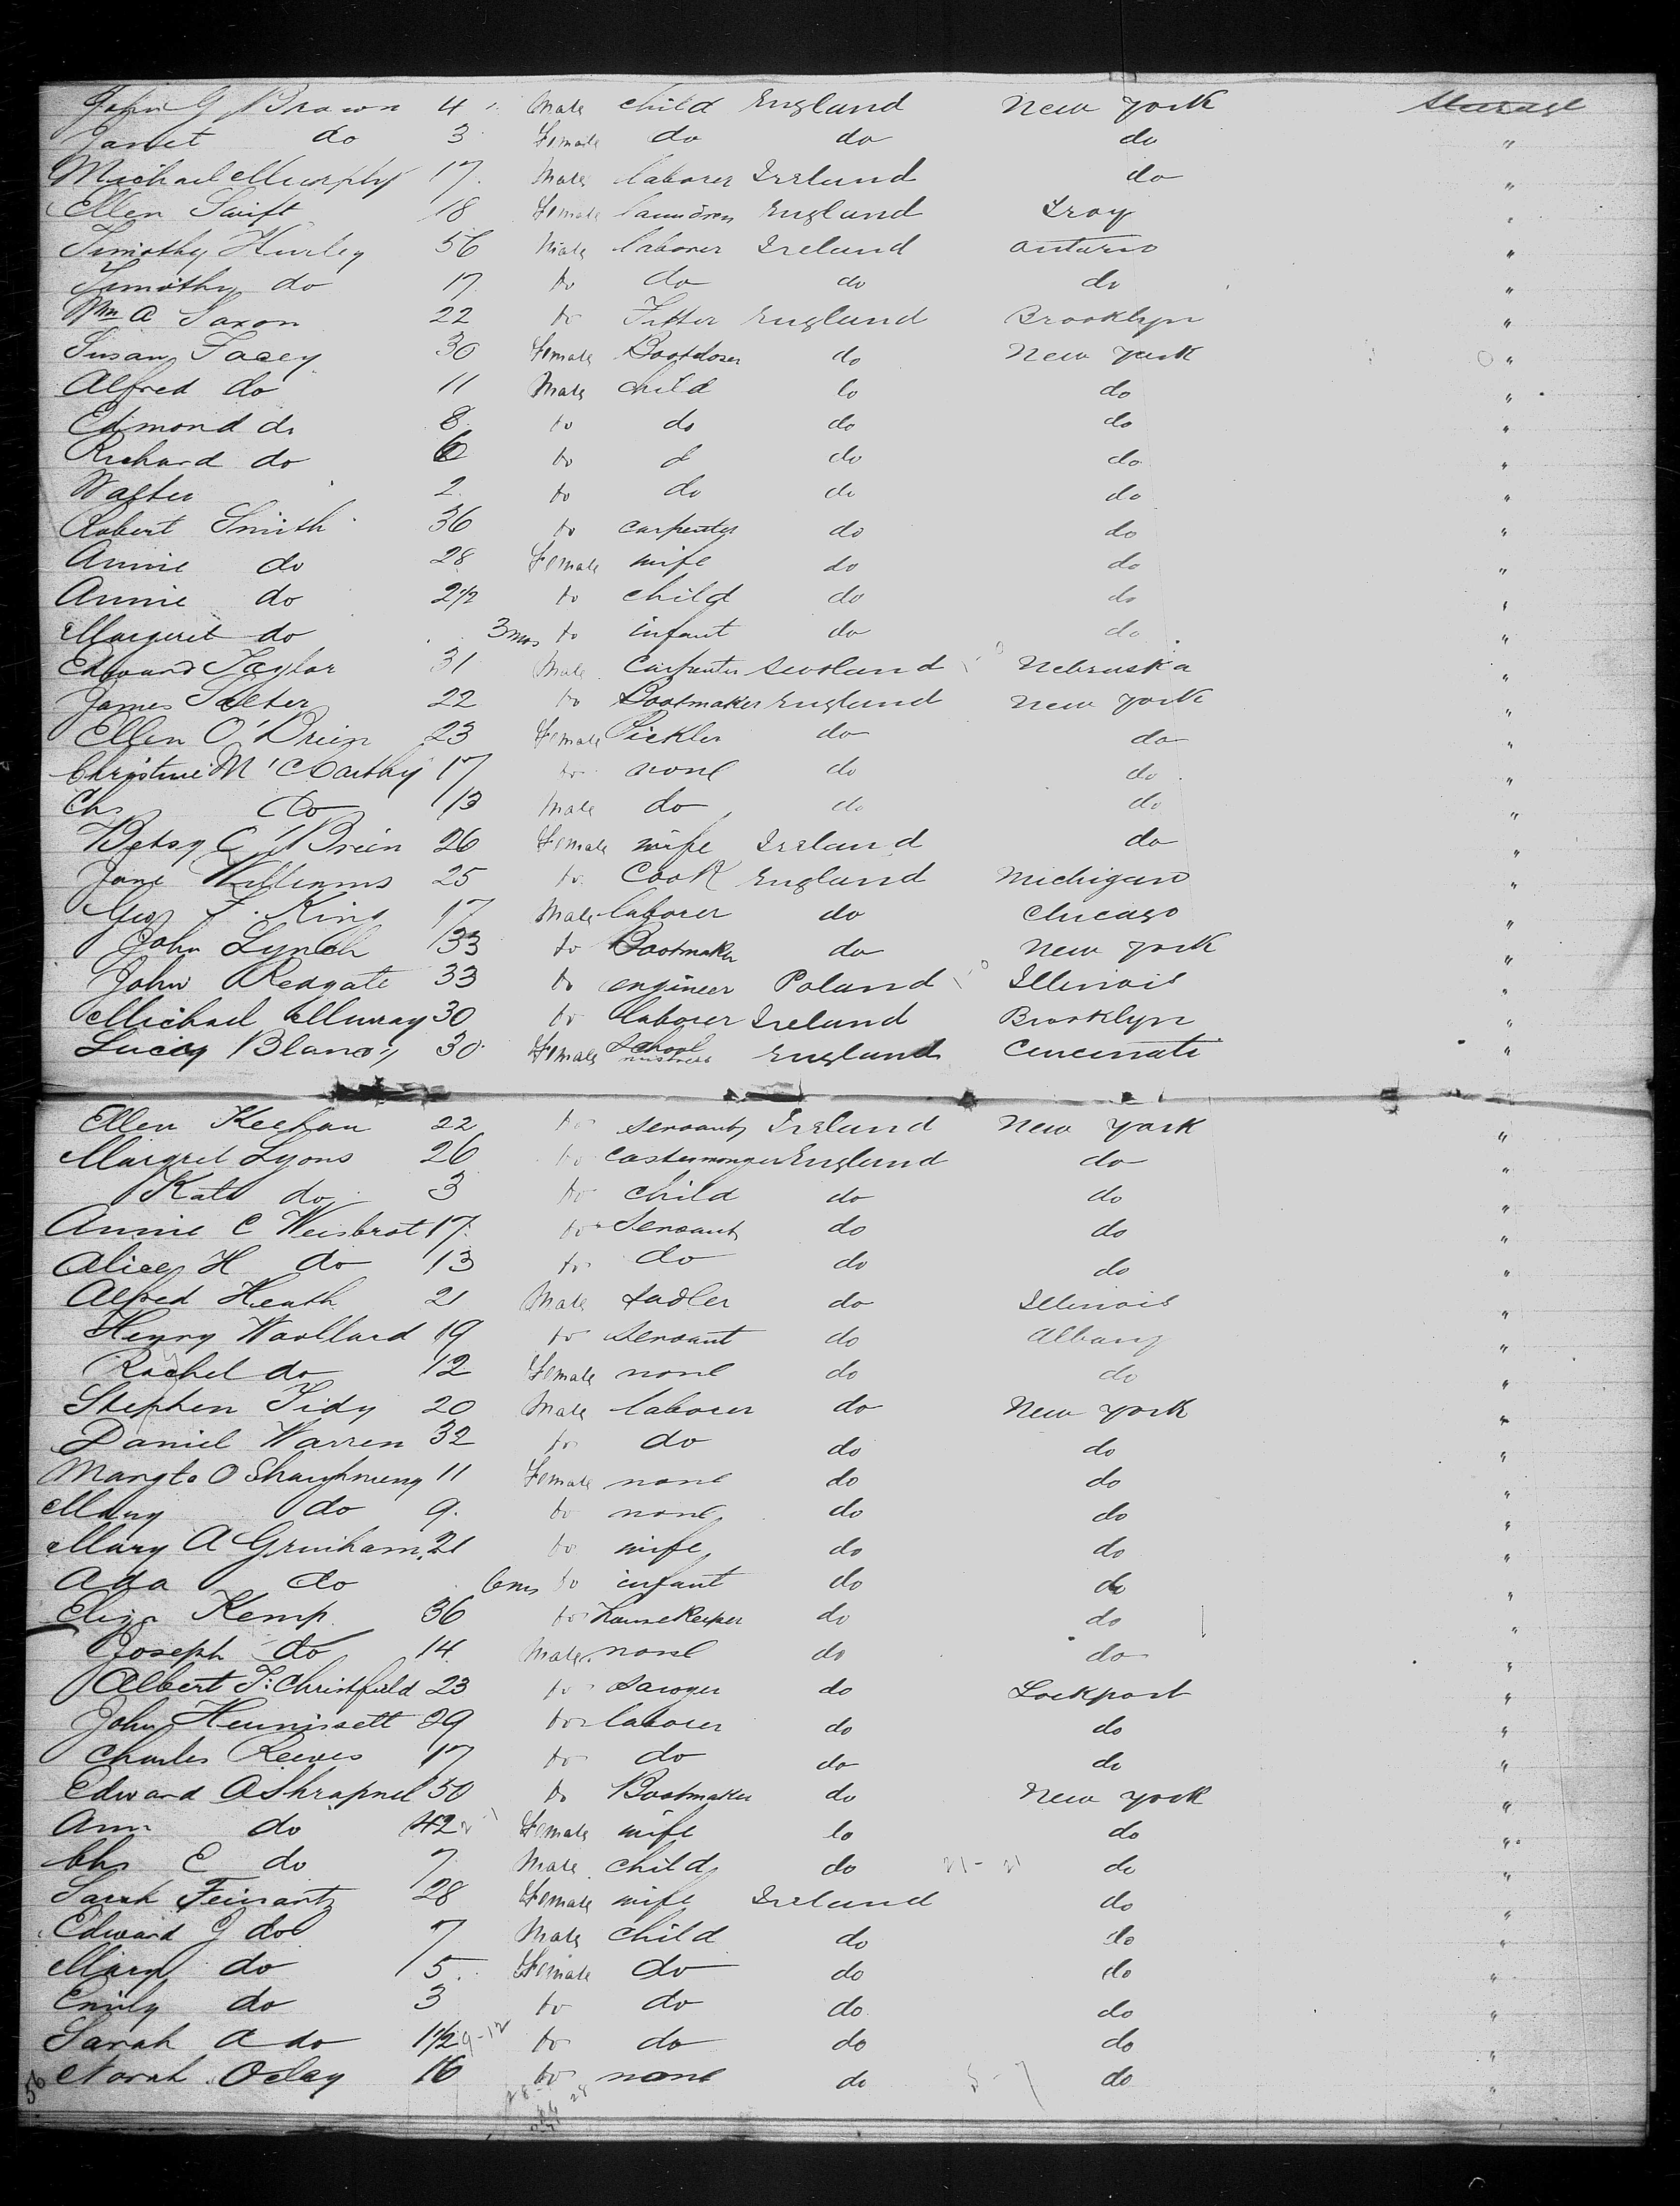 John G Brown 4 Male child England New York Steerage
Janet do 3 Female do do do "
Michael Murphy 17 Male laborer Ireland do "
Ellen Swift 18 Female England Troy "
Timothy Hurley 56 Male laborer Ireland Ontario "
Timothy do 17 do do do do "
Wm A Saxon 22 do Fitter England Brooklyn "
Susan Lacey 30 Female Bootcloser do New York "
Alfred do 11 Male child do do "
Edmond do 8 do do do do "
Richard do 6 do d do do "
Walter 2 do do do do "
Robert Smith 36 do carpenter do do "
Annie do 28 Female wife do do "
Annie do 2 1/2 do child do do "
Margaret do 3 mos do infant do do "
Edward Taylor 31 Male Carpenter Scotland Nebraska "
James Salter 22 do Bootmaker England New York "
Ellen O'Brien 23 Female Pickler do do "
Christine McCarthy 17 do none do do "
Chs do 13 Male do do do "
Betsy O'Brien 26 Female wife Ireland do "
Jane Williams 25 do Cook England Michigan "
Geo F. King 17 Male laborer do Chicago "
John Lynch 33 do Bootmaker do New York "
John Redgate 33 do engineer Poland Illinois "
Michael Murray 30 do laborer Ireland Brooklyn "
Lucy 30 Female School mistress England Cincinati "
Ellen Keehan 22 do servant Ireland New York "
Margret Lyons 26 do Costermonger England do "
Kate do 3 do child do do "
Annie C Weisbrot 17 do Servant do do "
Alice H do 13 do do do do "
Alfred Heath 21 Male Sadler do Illinois "
Henry Woollard 19 do servant do Albany "
Rachel do 12 Female none do do "
Stephen Tidy 20 Male laborer do New York "
Daniel Warren 32 do do do do "
Margt O Shaughnessy 11 Female none do do "
Mary do 9 do none do do "
Mary A Grinham 21 do wife do do "
Ada do 6 ms do infant do do "
Eliza Kemp 36 do HouseKeeper do do "
Joseph do 14 Male none do do "
Albert F. Christfield 23 do Sawyer do Lockport "
John Hennissett 29 do laborer do do "
Charles Reeves 17 do do do do "
Edward A Shrapnel 50 do Bootmaker do New York "
Ann do 42 Female wife do do "
Chs E do 7 Male child do do "
Sarah 28 Female wife Ireland do "
Edward J do 7 Male child do do "
Mary do 5 Female do do do "
Emily do 3 do do do do "
Sarah A do 1 1/2 do do do do "
Norah 16 do none do do "
56